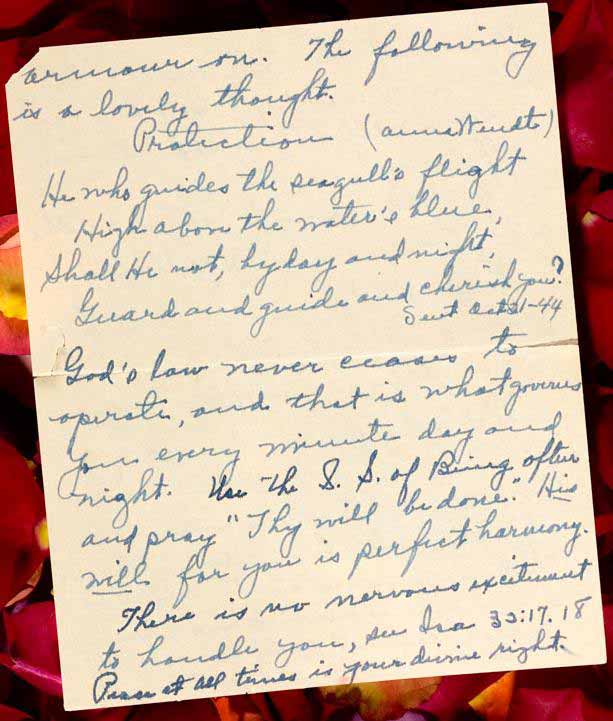 armour on. The following
is a lovely thought.
Protection (anna Wendt)
He who guides the seagull's flight
High above the water's blue,
Shall He not, by day and night,
Guard and guide and cherish you?
Sent Oct 21-44
God's law never ceases to
operate, and that is what governs
you every minute day and
night. Use the S. S. of Being often
and pray "Thy will be done." His
will for you is perfect harmony.
There is no nervous excitement
to handle you, see Isa 32:17. 18
Peace at all times is your divine right.